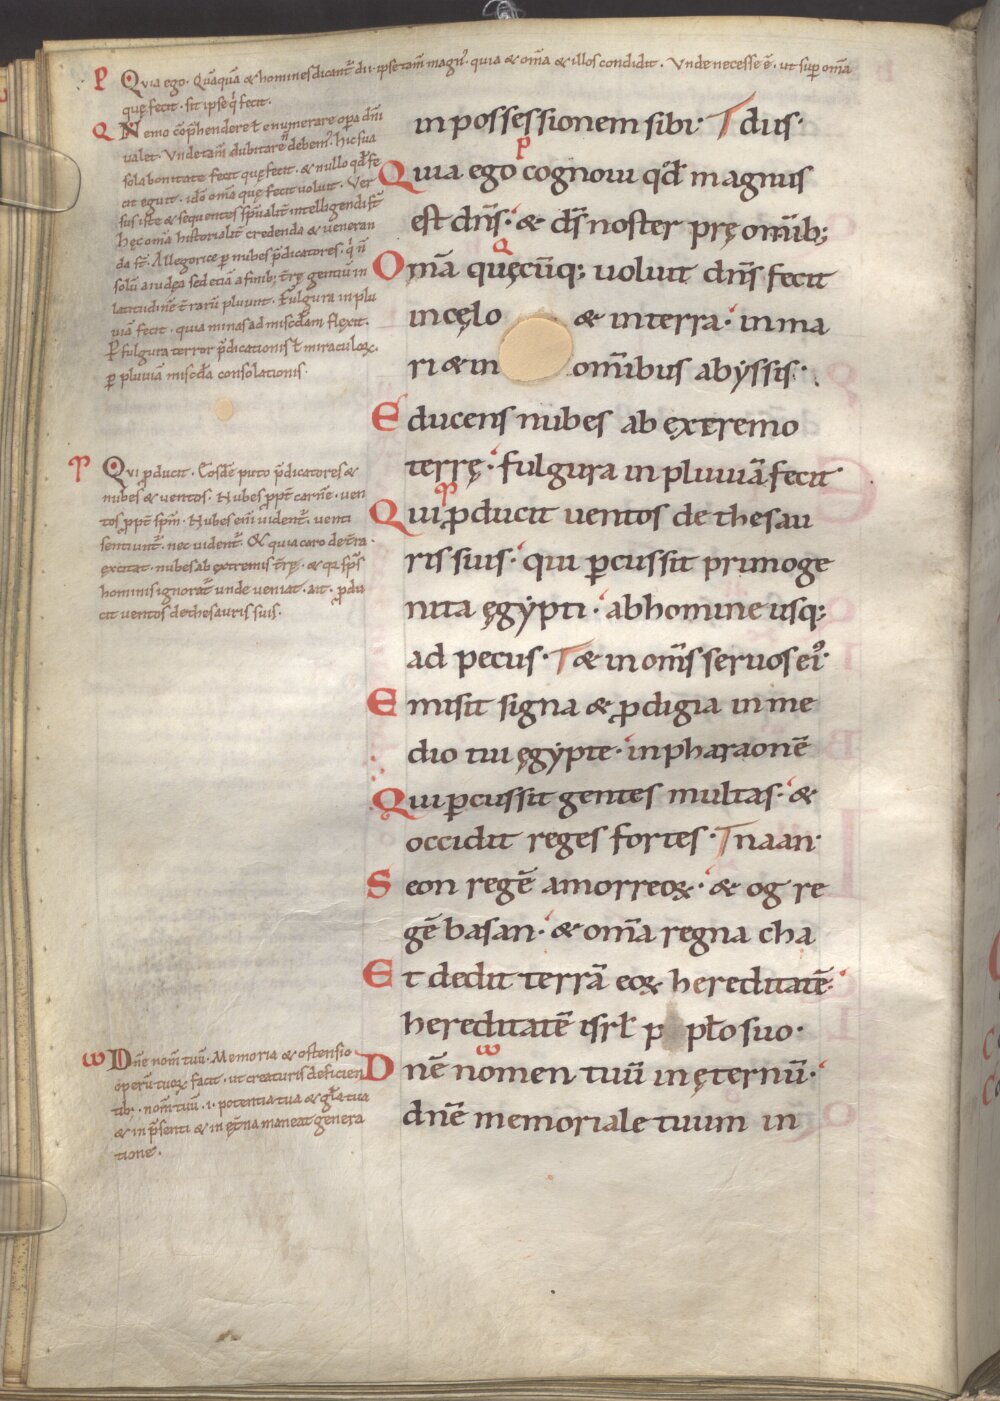 P Quia ego. Quāquā & homines dicant᷑ dii. ipse tam̄ magn᷒. quia & om̄a & illos condidit. Unde necesse ē. ut sup om̄a
quę fecit. sit ipse q̇ fecit.
Q Nemo cōp̄hendere ł enumerare opa dn̄i
ualet. Unde tam̄ dubitare n̄ debem᷒. hic sua
sola bonitate fecit quę fecit. & nullo qđ fe
cit eguit. idō om̄a quę fecit uoluit. Ver
sus iste & sequentes sp̄ualit᷑ intelligendi st̄
hęc om̄a historialit᷑ credenda & ueneran
da st̄. Allegorice ꝑ nubes p̄dicatores. q̇ n̄
solū a iudęa sed etiā a finib; t̄rę gentiū in
latitudine t̄rarū pluunt. Fulgura in plu
uiā fecit. quia minas ad mīscđam flexit.
ꝑ fulgura terror p̄dicationis ł miraculoꝝ.
ꝑ pluuiā miscđa consolationis.
Qui ꝓducit. Eosdē puto p̄dicatores &
nubes & ventos. Nubes ꝓpt̄ carnē. ven
tos ꝓpt̄ sp̄m. Nubes eni uident᷑. venti
sentiunt᷑. nec uident᷑. Et quia caro de t̄ra
excitat. nubes ab extremis t̄rę. & qa sp̄s
hominis ignorat᷑ unde veniat. ait. ꝓdu
cit ventos de thesauris suis.
ω Dn̄e nom̄ tuū. Memoria & ostensio
operū tuoꝝ facit. ut creaturis deficien
tib; . nom̄ tuū .i. potentia tua & gl̄a tua
& in p̄senti & in ęt̄na maneat genera
tione.
in possessionem sibi. dus.
Quia ego cognoui qđ magnus
est dn̄s. & ds̄ noster prę om̄ib;
Om̄a quęcūq; uoluit dn̄s fecit
in cęlo & in terra. in ma
ri & in om̄ibus abyssis.
Educens nubes ab extremo
terrę. fulgura in pluuiā fecit.
Qui ꝓducit uentos de thesau
ris suis. qui ꝑcussit primoge
nita ęgypti. ab homine usq;
ad pecus. & in om̄s seruos ei᷒.
Emisit signa & ꝓdigia in me
dio tui ęgypte. in pharaonē
Qui ꝑcussit gentes multas. &
occidit reges fortes. naan.
Seon regē amorreoꝝ. & og re
gē basan. & om̄a regna cha
Et dedit terrā eoꝝ hereditatē.
hereditatē isrł p pło suo.
Dn̄ē nomen tuū in ęternū.
dn̄ē memoriale tuum in